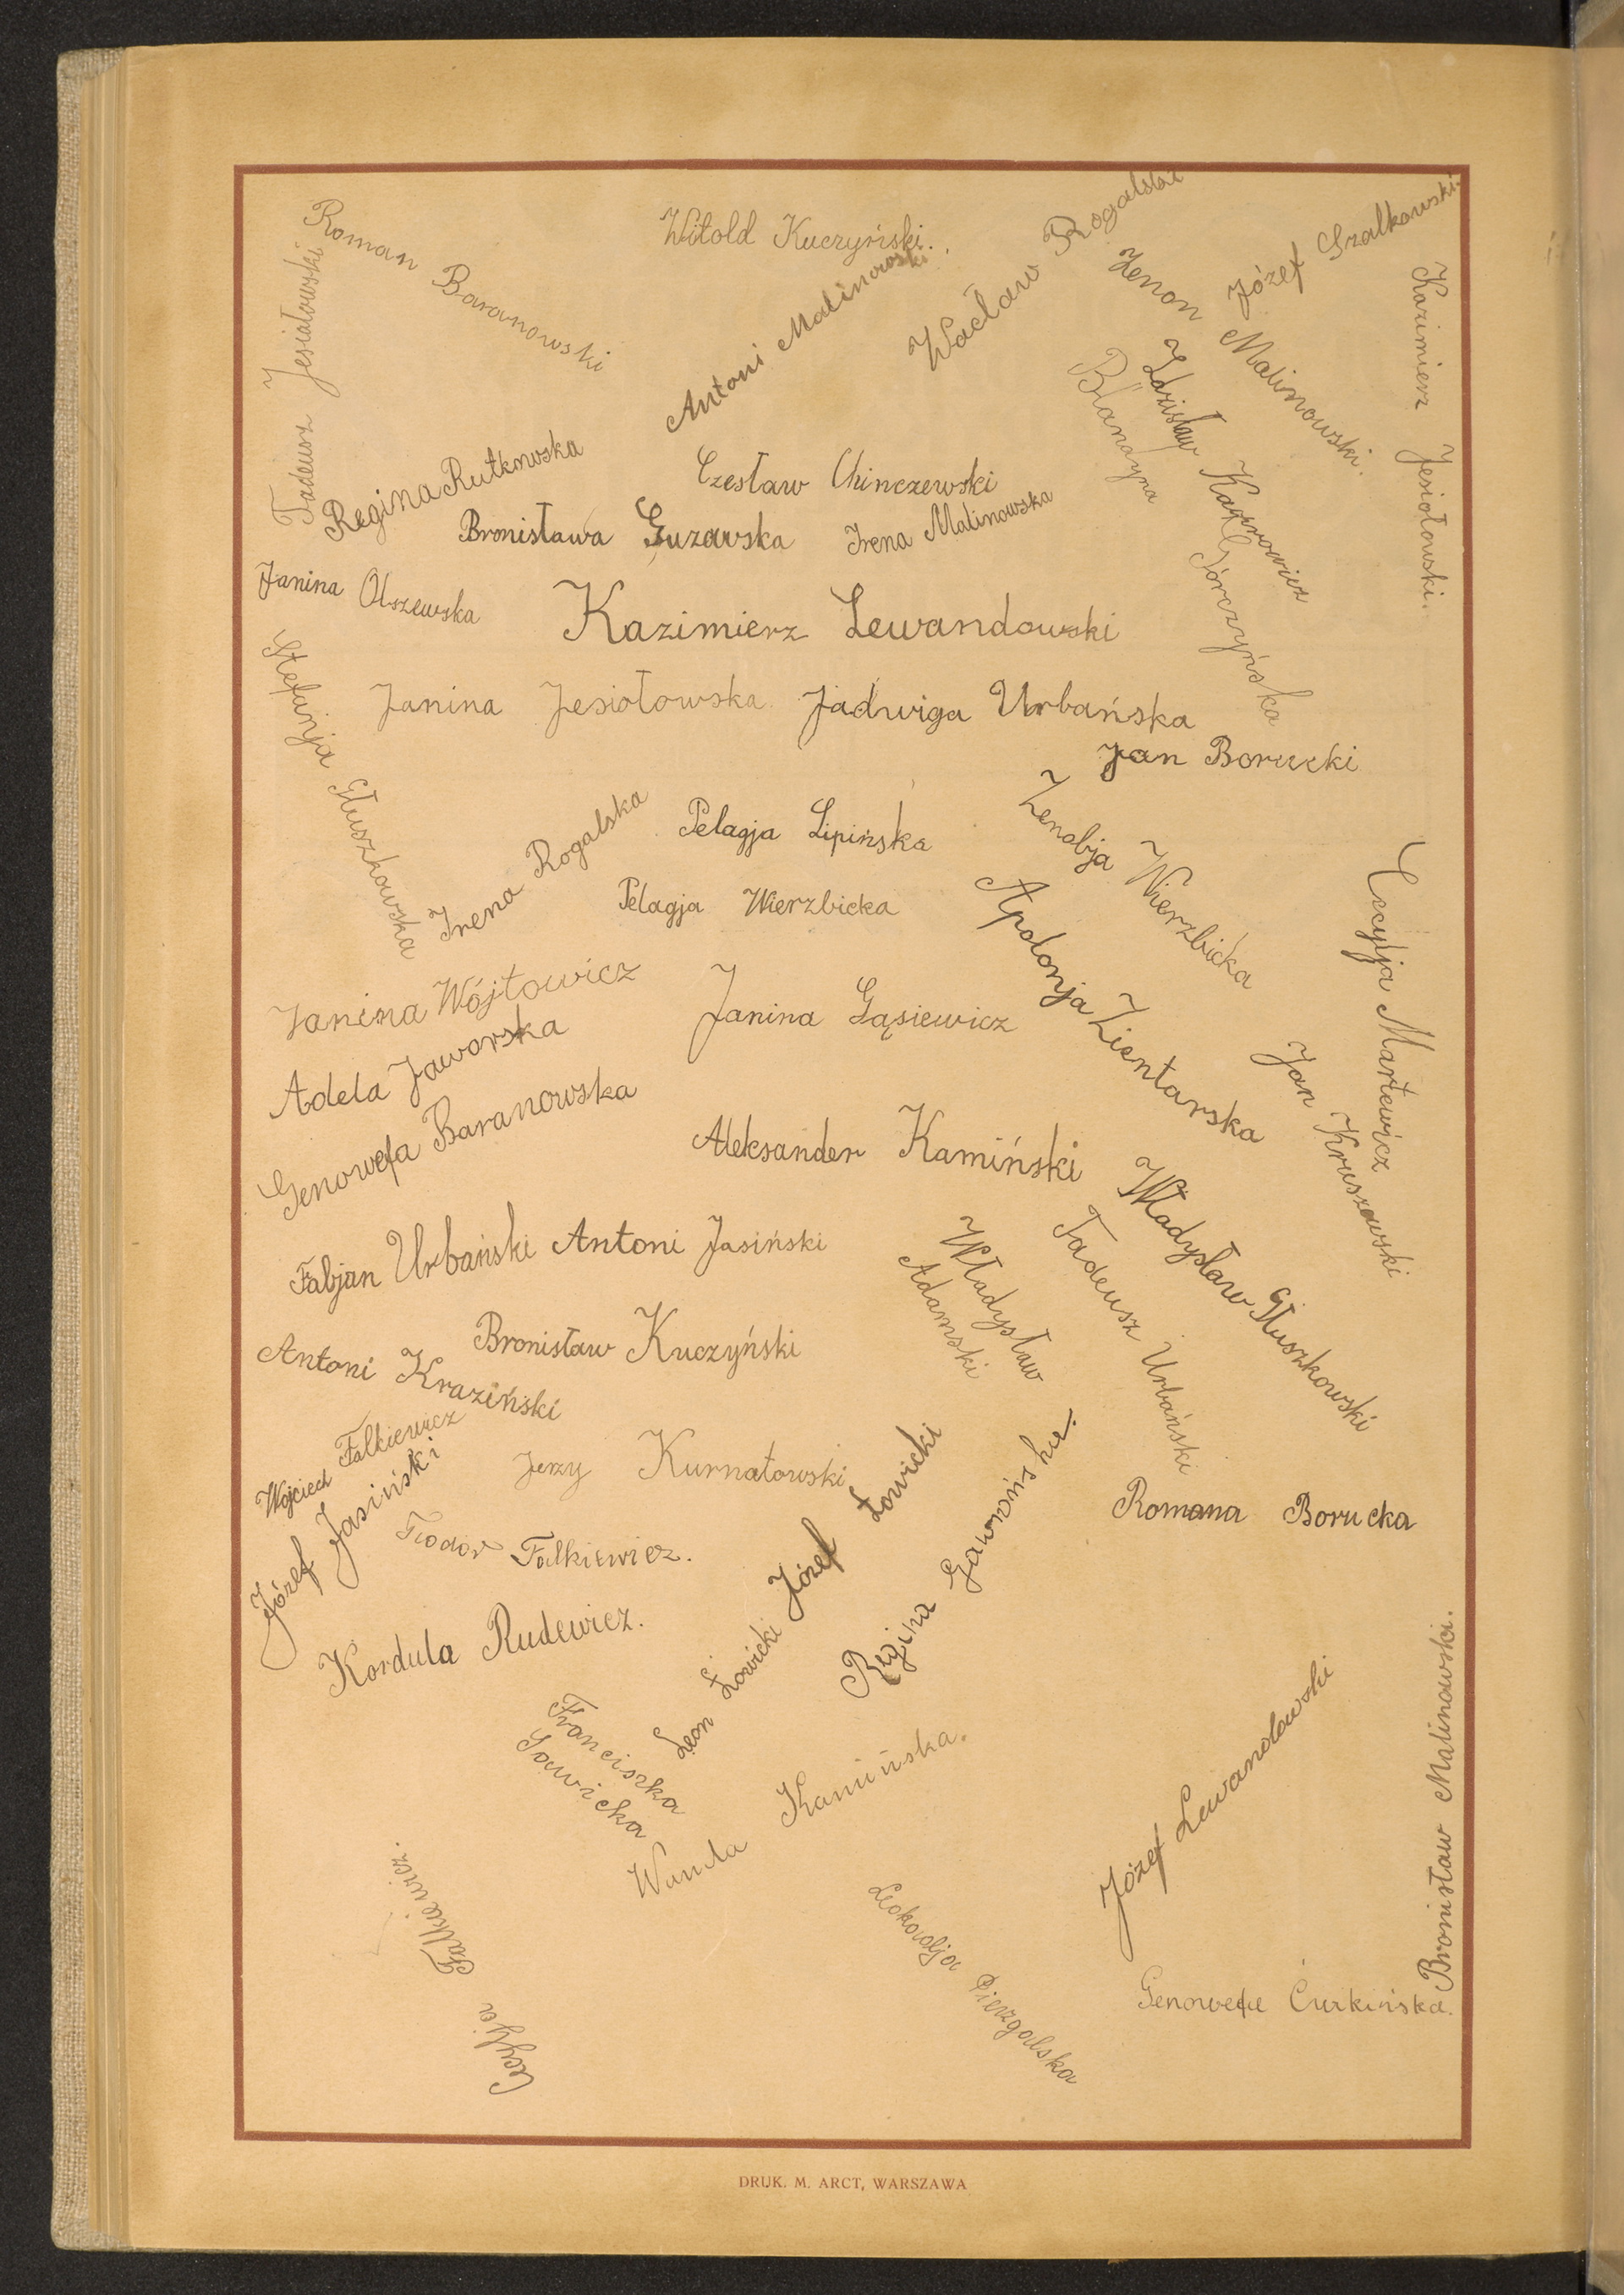 Roman Baranowski
Witold Kuczyński.
Wacław Rogalski
Józef Szalkowski.
Tadeusz Jesiałowski
Antoni Malinowski
Zenon Malinowski.
Kazimierz Jesiołowski.
Zdzisław
Blandyna Górczyńska
Regina Rutkowska
Czesław Chinczewski
Bronisława Guzawska
Irena Malinowska
Janina Olszewska
Kazimierz Lewandowski
Stefanja Głuszkowska
Janina Jesiołowska
Jadwiga Urbańska
Jan Borucki
Irena Rogalska
Pelagja Lipińska
Zenobja Wierzbicka
Pelagja Wierzbicka
Apolonja Zientarska
Cecylja Martewicz
Janina Wójtowicz
Janina Gąsiewicz
Adela Jaworska
Jan Kruszewski
Genowefa Baranowska
Aleksander Kamiński
Władysław Głuszkowski
Fabjan Urbański
Antoni Jasiński
Władysław
Adamski
Tadeusz Urbański
Antoni Kraziński
Bronisław Kuczyński
Wojciech Falkiewicz
Jerzy Kurnatowski
Józef Łowicki
Regina Gawrońska.
Romana Borucka
Józef Jasiński
Teodor Falkiewicz.
Kordula Rudewicz.
Leon Łowicki
Franciszka
Sawicka
Wanda Kamińska.
Józef Lewandowski
Bronisław Malinowski.
Cecylja Falkiewicz.
Leokadja Pierzgalska
Genowefa Ćurkińska.
DRUK. M. ARCT, WARSZAWA